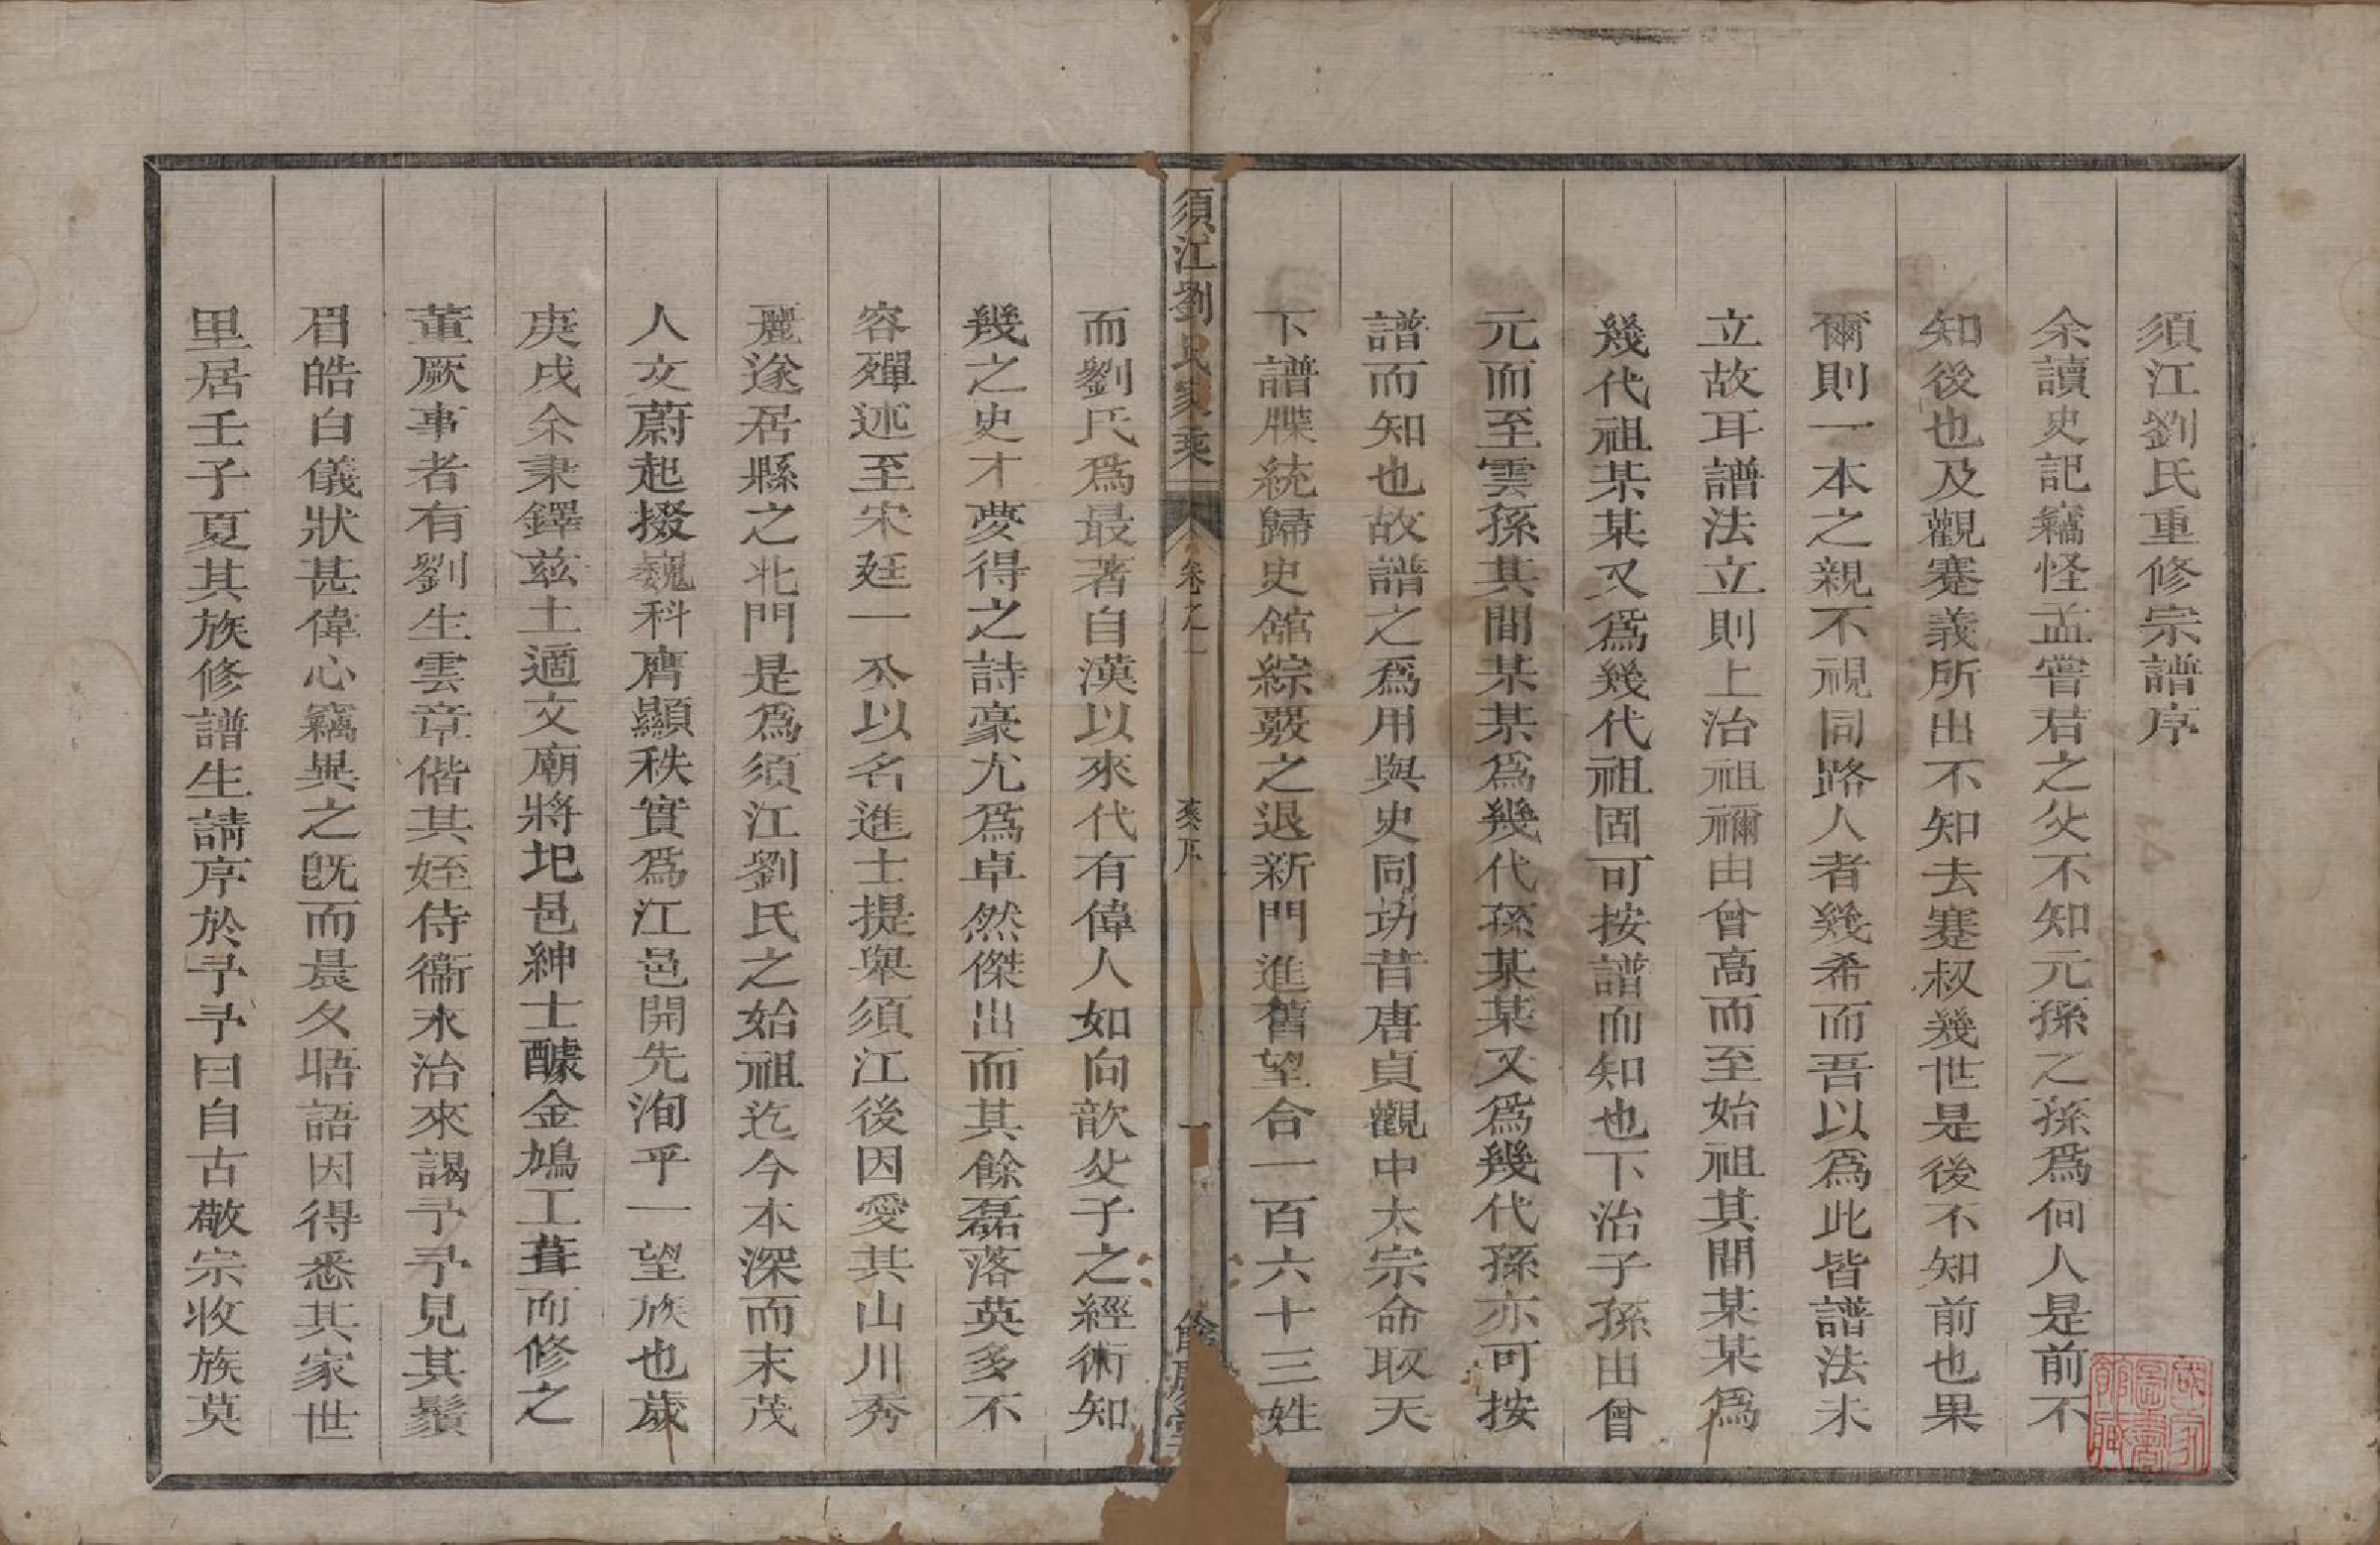 須江劉氏重修宗譜序
余讀史記竊怪孟嘗君之父不知元孫之孫爲何人是前不
知後也及觀蹇義所出不知去蹇叔幾世是後不知前也果
爾則一本之親不視同路人者幾希而吾以爲此皆譜法未
立故耳譜法立則上治祖禰由曾高而至始祖其間某某爲
幾代祖某某又爲幾代祖固可按譜而知也下治子孫由曾
元而至雲孫其間某某爲幾代孫某某又爲幾代孫亦可按
譜而知也故譜之爲用與史同功昔唐貞觀中太宗命取天
下譜牒統歸史舘綜覈之退新門進舊望合一百六十三姓
須江劉氏家乘
卷之一
序
一
慶堂
而劉氏爲最著自漢以來代有偉人如向歆父子之經術知
幾之史才夢得之詩豪尤爲卓然傑出而其餘磊落英多不
容殫述至宋廷一公以名進士提舉須江後因愛其山川秀
麗遂居縣之北門是爲須江劉氏之始祖迄今本深而末茂
人文蔚起掇巍科膺顯秩實爲江邑開先洵乎一望族也歲
庚戌余秉鐸兹土適文廟將圯邑紳士醵金鳩工葺而修之
董厥事者有劉生雲章偕其姪侍衞永治來謁予予見其鬚
眉皓白儀狀甚偉心竊異之旣而晨夕晤語因得悉其家世
里居壬子夏其族修譜生請序於予予曰自古敬宗收族莫
國家圖書館藏